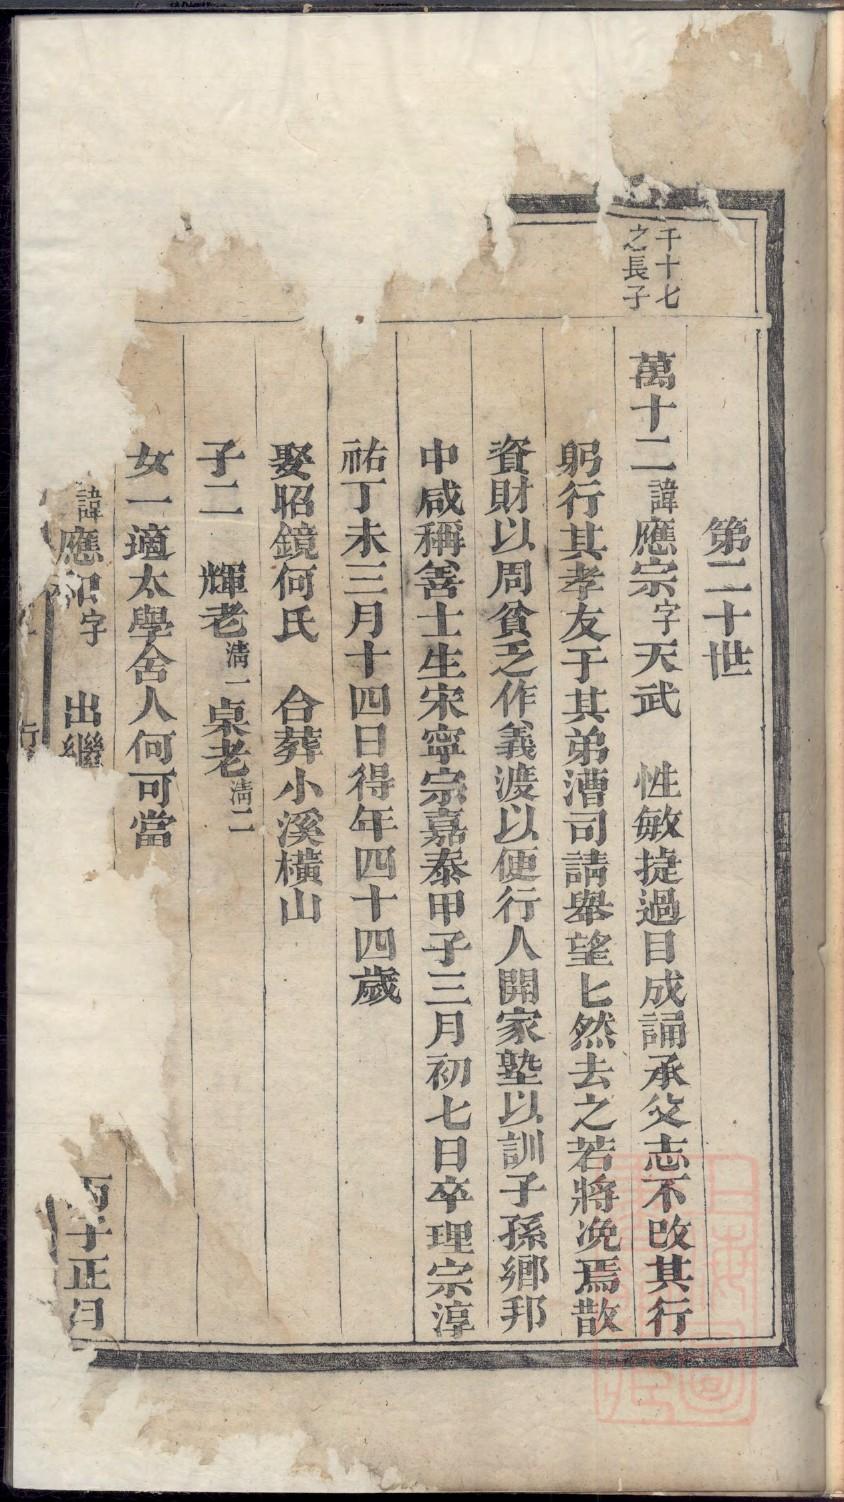 千十七
之長子
第二十世
萬十二諱應宗字天武　性敏捷過目成誦承父志不改其行
躬行其孝友于其弟漕司請舉望匕然去之若將浼焉散
資財以周貧乏作義渡以便行人開家塾以訓子孫鄉邦
中咸稱善士生宋寧宗嘉泰甲子三月初七日卒理宗淳
祐丁未三月十四日得年四十四歲
娶昭鏡何氏　合葬小溪橫山
子二　輝老清一桌老清二
女一適太學舍人何可當
諱應祀字　出繼
丙子正月